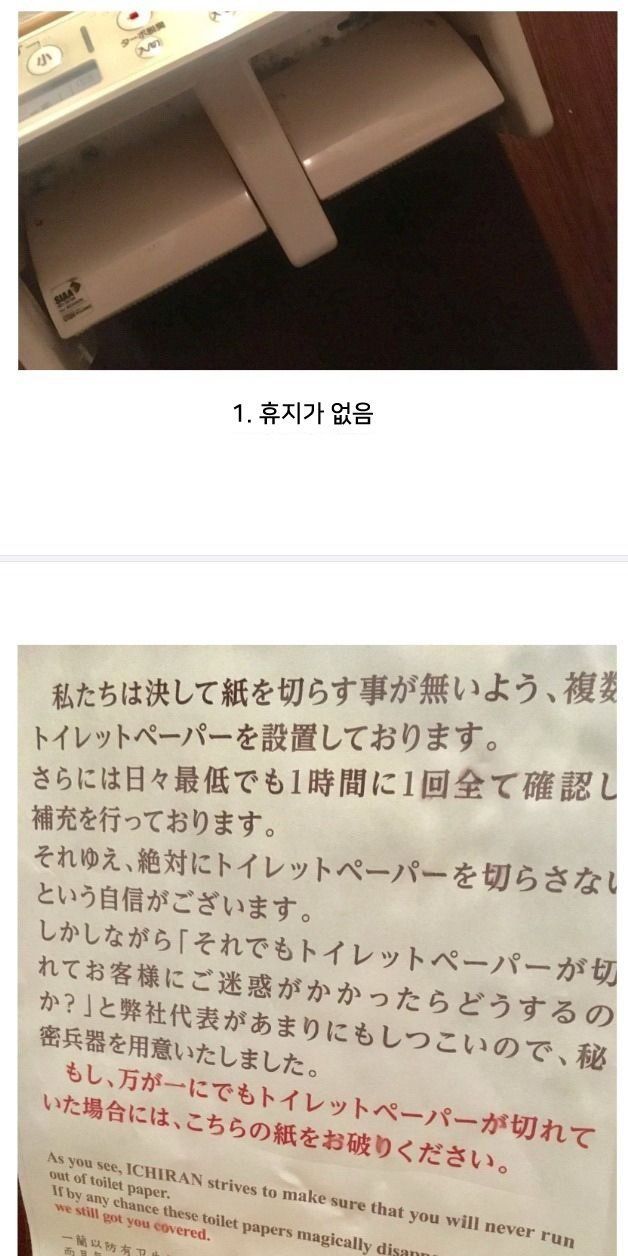 小
ターボ脱臭
入/切
SIAA
1. 휴지가 없음
私たちは決して紙を切らす事が無いよう、複数
トイレットペーパーを設置しております。
さらには日々最低でも1時間に1回全て確認し
補充を行っております。
それゆえ、絶対にトイレットペーパーを切らさない
という自信がございます。
しかしながら「それでもトイレットペーパーが切
れてお客様にご迷惑がかかったらどうするの
か?」と弊社代表があまりにもしつこいので、秘
密兵器を用意いたしました。
もし、万が一にでもトイレットペーパーが切れて
いた場合には、こちらの紙をお破りください。
As you see, ICHIRAN strives to make sure that you will never run
out of toilet paper.
If by any chance these toilet papers magically disappe
we still got you covered.
一蘭以防有卫生